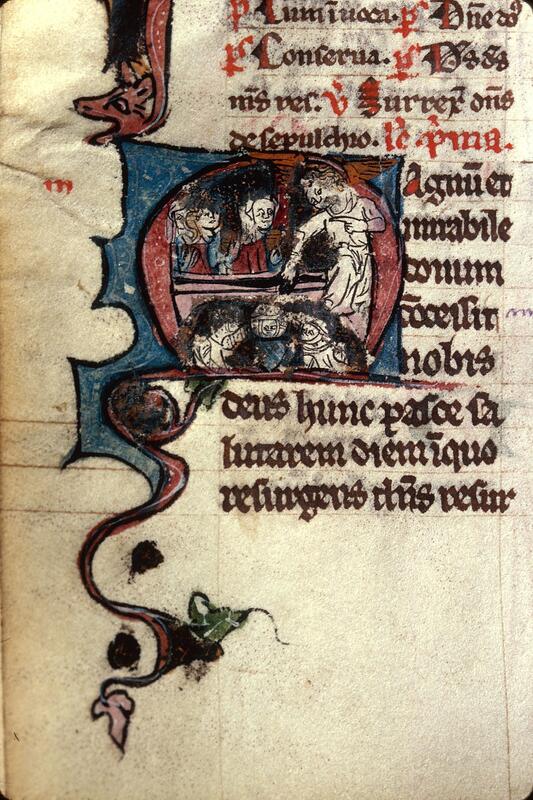 ps Cum inuoca. ps Dñe ds̄
ps Conserua. ps Ds ds
ms res. v Surrex̄ dn̄s
de sepulchro. lc̄ p̄ma.
m
Agnū et
mirabile
donum
cōcessit
nobis
deus hunc pasce sa
lutarem diem ī quo
resurgens dn̄s resur